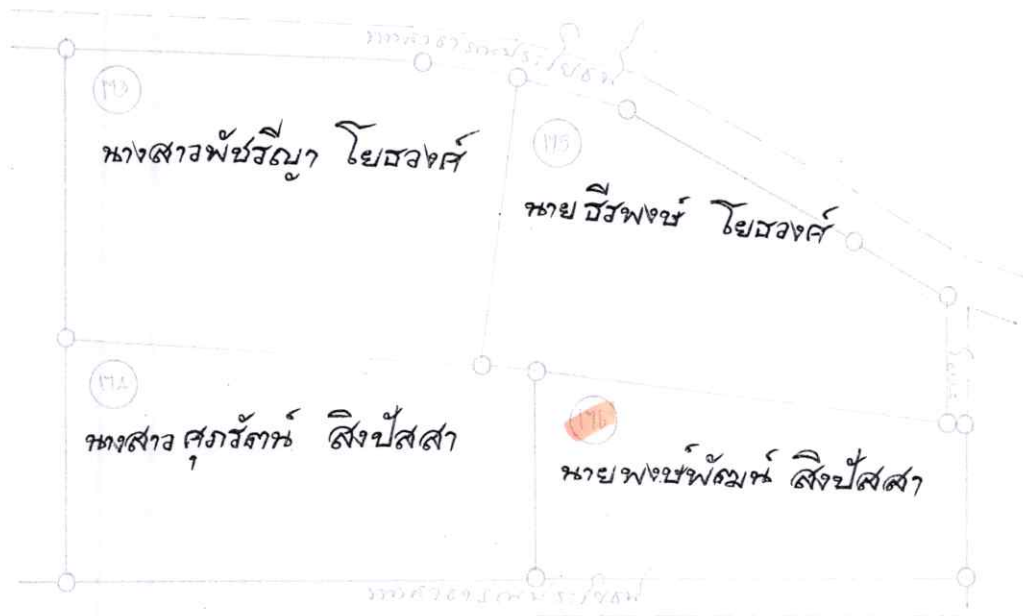 ทางสาธารณประโยชน์
นางสาวพัชรีญา โยธวงศ์
175
นายธีรพงษ์ โยธวงศ์
นางสาวศุภรัตน์ สิงปัสสา
176
นายพงษ์พัฒน์ สิงปัสสา
ทางสาธารณประโยชน์